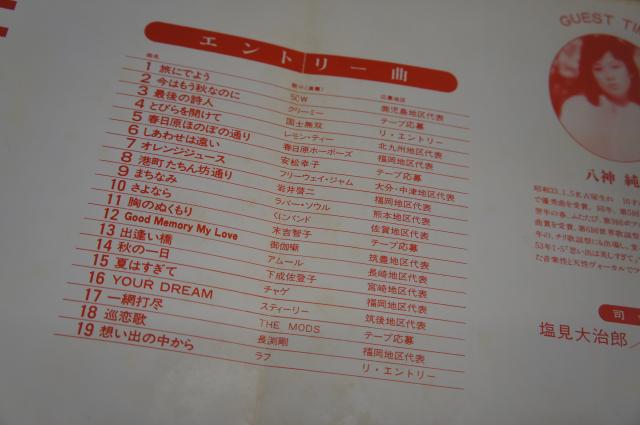 エントリー曲
曲名 歌い(演奏) 応募地区
1 旅にでよう SCW 鹿児島地区代表
2 今はもう秋なのに クリーミー テープ応募
3 最後の詩人 国士無双 リ・エントリー
4 とびらを開けて レモン・ティー 北九州地区代表
5 春日原ほのぼの通り 春日原ホーボーズ 福岡地区代表
6 しあわせは遠い 安松幸子 テープ応募
7 オレンジジュース フリーウェイ・ジャム 大分・中津地区代表
8 港町たちん坊通り 岩井啓二 福岡地区代表
9 まちなみ ラバー・ソウル 熊本地区代表
10 さよなら くにバンド 佐賀地区代表
11 胸のぬくもり 末吉智子 テープ応募
12 Good Memory My Love 御伽噺 筑豊地区代表
13 出逢い橋 アムール 長崎地区代表
14 秋の一日 下成佐登子 宮崎地区代表
15 夏はすぎて チャゲ 福岡地区代表
16 YOUR DREAM スティーリー 筑後地区代表
17 一網打尽 THE MODS テープ応募
18 巡恋歌 長渕剛 福岡地区代表
19 想い出の中から ラフ リ・エントリー
GUEST TIM
八神 純
昭和33.1.5名古屋生れ
で優秀曲を受賞。
曲賞を受賞、第6回世界歌謡祭
年の、チリ歌謡祭にも出場し、
53年1・5"思い出は美しすぎて"
な音楽性と天性ヴォーカルで
司
塩見大治郎